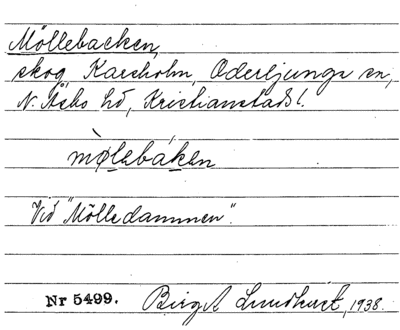 Möllebacken,
skog, Karsholm, Oderljunga sn,
N. Åsbo hd, Kristianstads l.
mø̀lebáken
Vid "Mölledammen".
Nr 5499. Birgit Lundkvist, 1938.